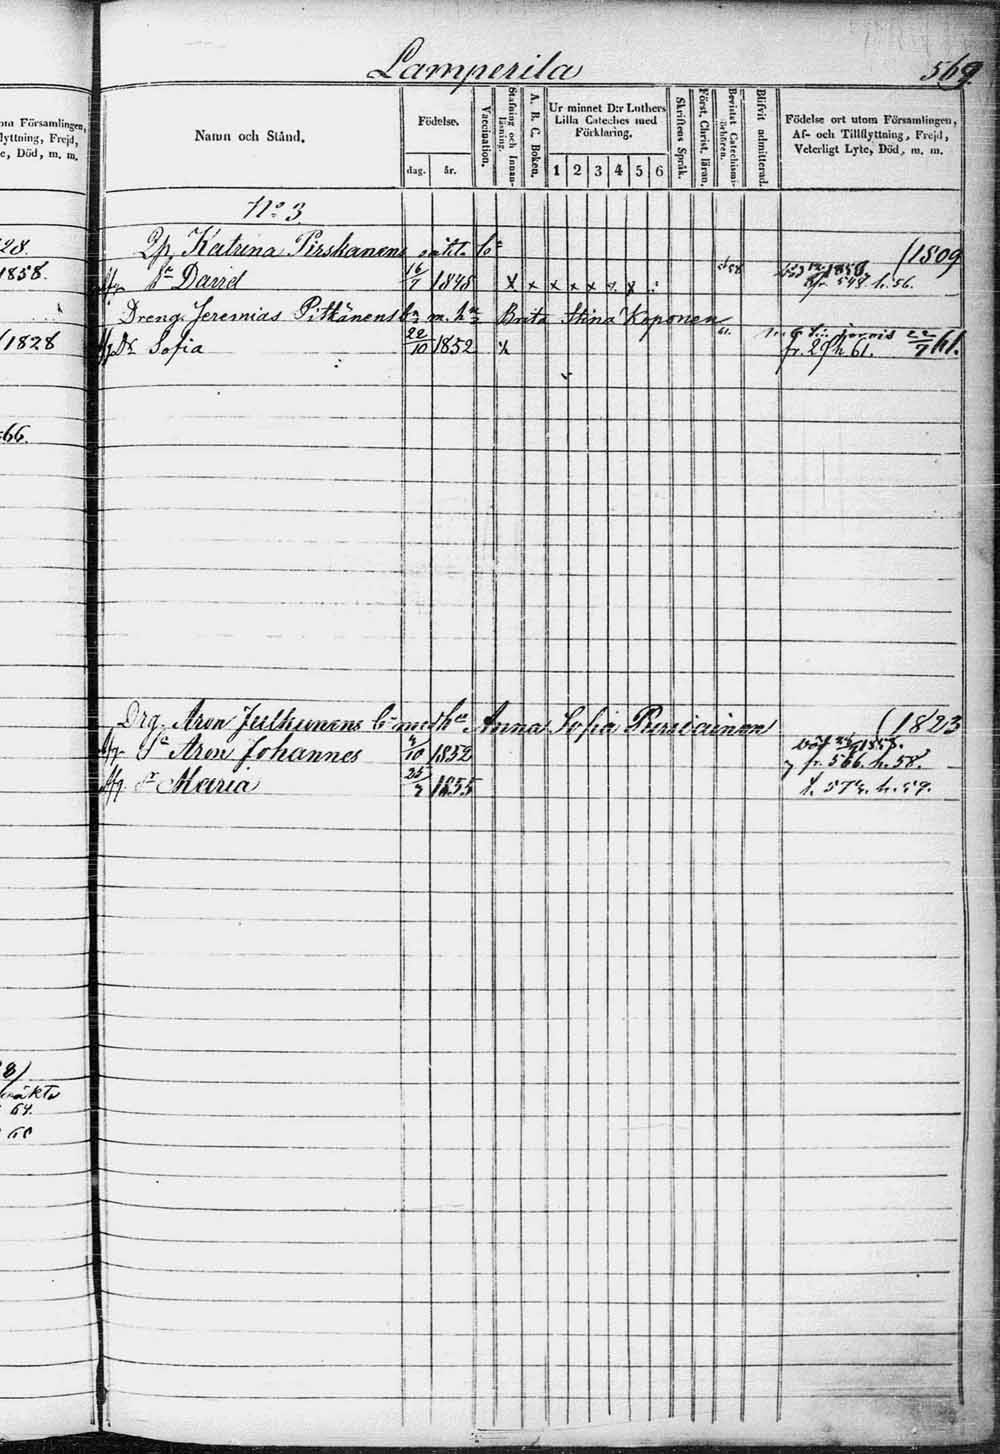 Lamperila
569
om Församlingen,
lyttning, Frejd,
e, Död, m. m.
Namn och Stånd.
Födelse.
dag. år.
Vaccination.
Stafning och Innanläsning.
A. B. C. Boken.
Ur minnet D:r Luthers
Lilla Cateches med
Förklaring.
1 2 3 4 5 6
Skriftens Språk.
Först. Christ. läran.
Bevistat Catechismiförhören.
Blifvit admitterad.
Födelse ort utom Församlingen,
Af- och Tillflyttning, Frejd,
Veterligt Lyte, Död, m. m.
No 3
28.
Katrina Pirskanens (1809
1858.
David 16/7 1848 x x x x x x x 58
548. h. 56.
Dreng. Jeremias Pitkänens m. h Brita Stina Koponen
(1828
Dr Sofia 22/10 1852 61. 22/7 61.
fr. 29 h 61.
66.
Drg. Aron Julkunens med h Anna Sofia Pursiainen (1823
Aron Johannes 10 1852 1858.
fr. 566. h. 58.
Maria 25 1855
h. 59.
8)
64.